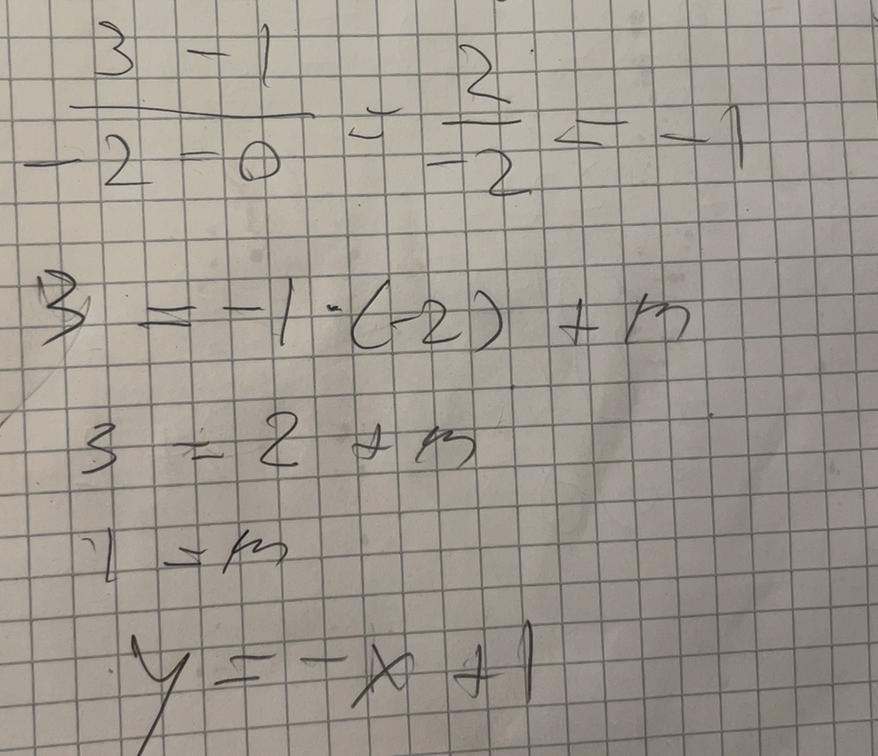 3 - 1
- 2 - 0 = 2 / -2 = -1
3 = -1 · (-2) + m
3 = 2 + m
1 = m
y = -x + 1